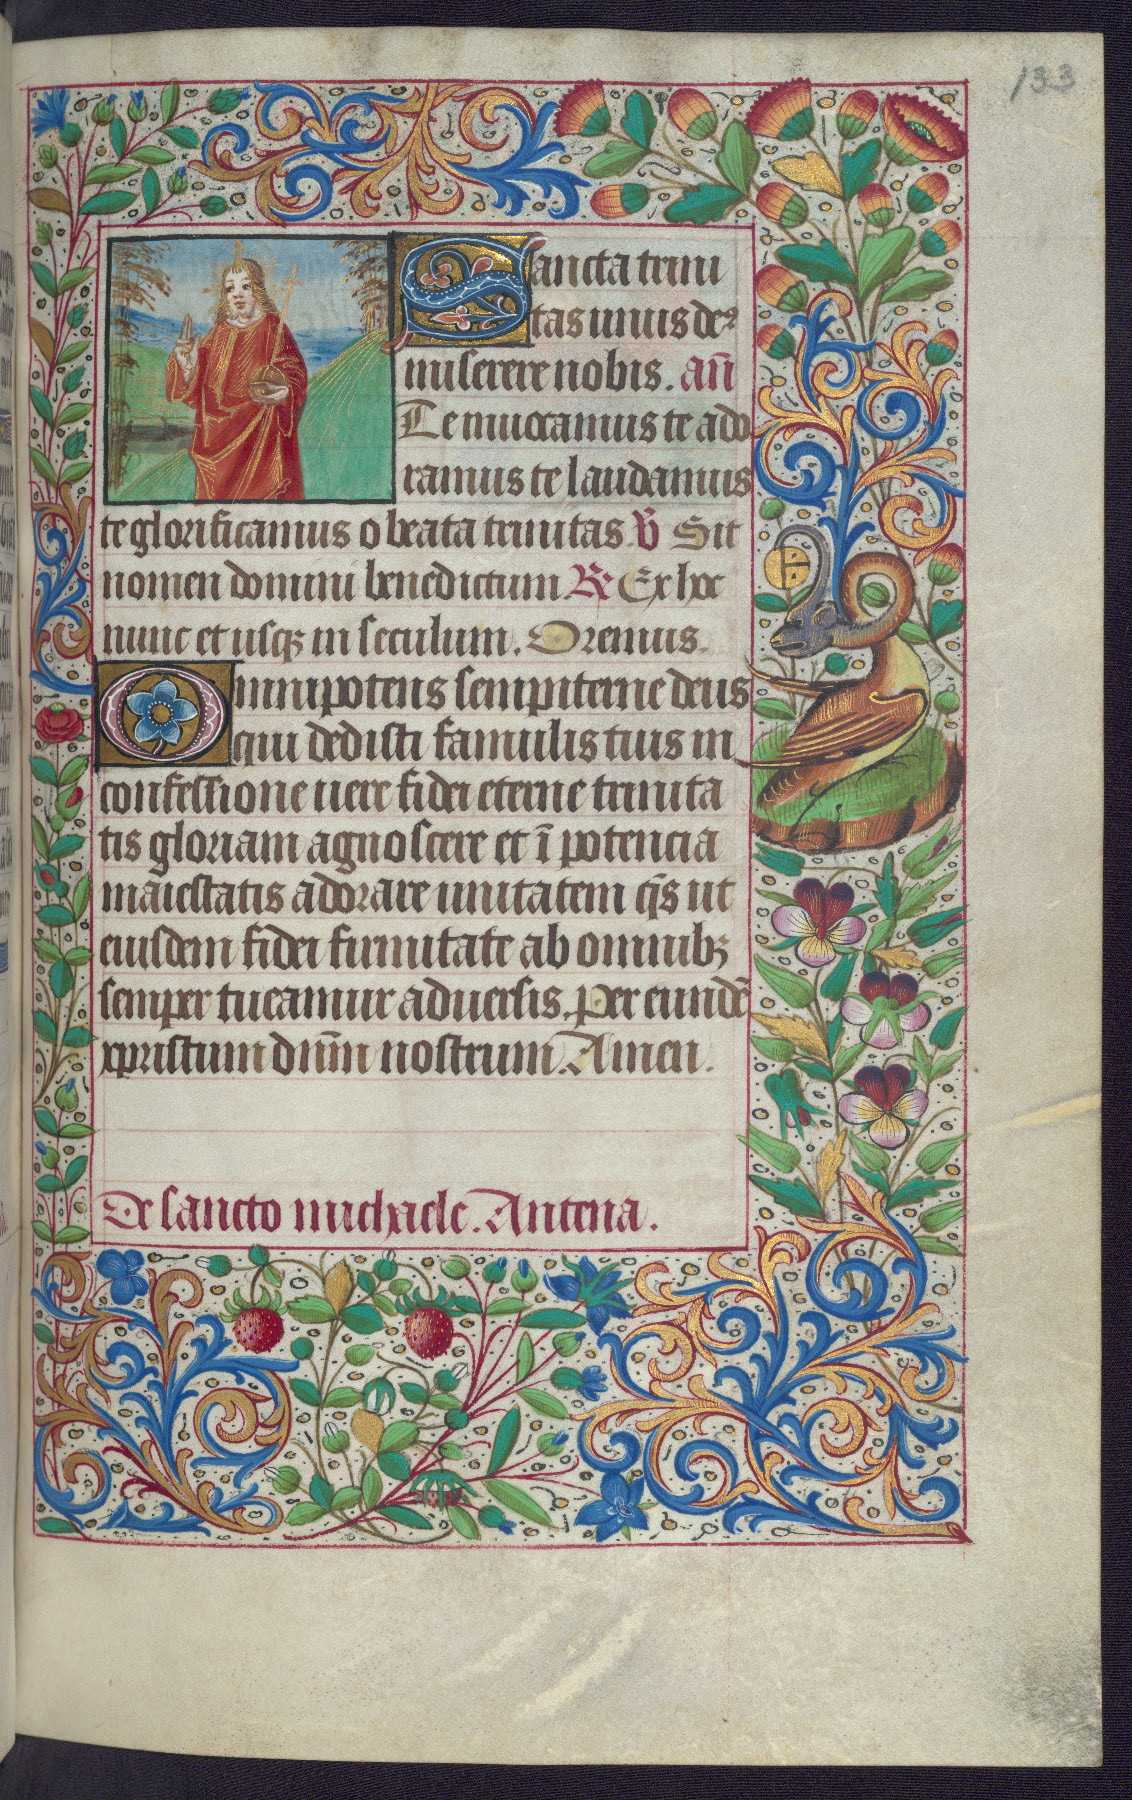 133
Sancta trini
tas unus deꝰ
miserere nobis. an̄
Te inuocamus te ado
ramus te laudamus
te glorificamus o beata trinitas. ꝟ Sit
nomen domini benedictum. ℟ Ex hoc
nunc et usqꝫ in seculum. Oremus.
Omnipotens sempiterne deus
qui dedisti famulis tuis in
confessione uere fidei eterne trinita
tis gloriam agnoscere et ī potencia
maiestatis adorare unitatem q̄s ut
eiusdem fidei firmitate ab omnibꝫ
semper tueamur aduersis. Per eundē
xpristum dn̄m nostrum. Amen.
De sancto michaele. Antena.